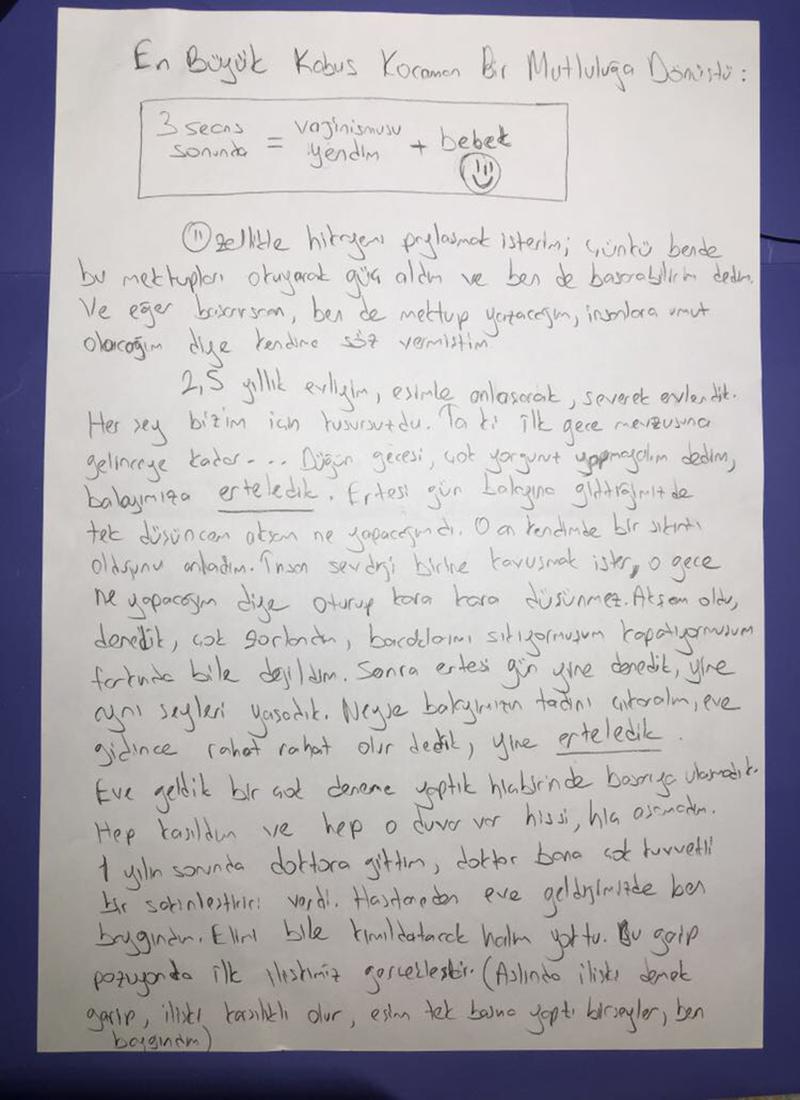 En Büyük Kabus Kocaman Bir Mutluluğa Dönüştü:
3 seans sonunda = vajinismusu yendim + bebek
Özellikle hikayemi paylaşmak isterim; çünkü bende
bu mektupları okuyarak güç aldım ve ben de başarabilirim dedim.
Ve eğer başarırsam, ben de mektup yazacağım, insanlara umut
olacağım diye kendime söz vermiştim.
2,5 yıllık evliyim, eşimle anlaşarak, severek evlendik.
Her şey bizim için kusursuzdu. Ta ki ilk gece mevzusuna
gelinceye kadar.... Düğün gecesi, çok yorgunuz yapmayalım dedim,
balayımıza erteledik. Ertesi gün balayına gittiğimizde
tek düşüncem akşam ne yapacağımdı. O an kendimde bir sıkıntı
olduğunu anladım. İnsan sevdiği birine kavuşmak ister, o gece
ne yapacağım diye oturup kara kara düşünmez. Akşam oldu,
denedik, çok zorlandım, bacaklarımı sıkıyormuşum kapatıyormuşum
farkında bile değildim. Sonra ertesi gün yine denedik, yine
aynı şeyleri yaşadık. Neyse balayımızın tadını çıkaralım, eve
gidince rahat rahat olur dedik, yine erteledik.
Eve geldik bir çok deneme yaptık hiçbirinde başarıya ulaşmadık.
Hep kasıldım ve hep o duvar var hissi, hiç aşamadım.
1 yılın sonunda doktora gittim, doktor bana çok kuvvetli
bir sakinleştirici verdi. Hastaneden eve geldiğimizde ben
baygındım. Elimi bile kımıldatacak halim yoktu. Bu garip
pozisyonda ilk ilişkimiz gerçekleşti. (Aslında ilişki demek
garip, ilişki karşılıklı olur, eşim tek başına yaptı birşeyler, ben
baygındım)